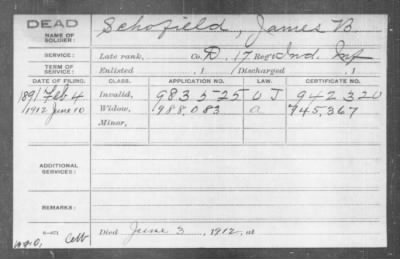 DEAD
NAME OF SOLDIER: Schofield, James B.
SERVICE: Late rank, Co. D. 17 Reg't Ind. Inf
TERM OF SERVICE: Enlisted , 1 Discharged , 1
DATE OF FILING. CLASS. APPLICATION NO. LAW. CERTIFICATE NO.
1891 Feb 4 Invalid, 983525 O J 942320
1912 June 10 Widow, 988,083 a 745,367
Minor,
ADDITIONAL SERVICES:
REMARKS:
Died June 3, 1912, at